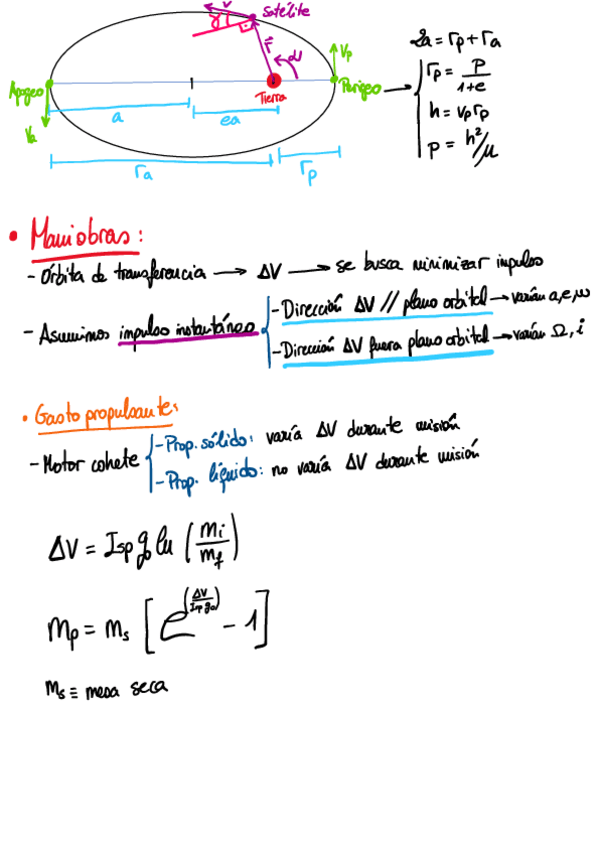 v
γ
Satélite
r⃗
α
Vp
Apogeo
Va
Tierra
Perigeo
a
ea
ra
rp
2a = rp + ra
rp = p/(1+e)
h = vp rp
p = h²/μ
• Maniobras:
- Órbita de transferencia → ΔV → se busca minimizar impulso
- Asumimos impulso instantáneo
- Dirección ΔV // plano orbital → varían a, e, ω
- Dirección ΔV fuera plano orbital → varían Ω, i
• Gasto propulsante:
- Motor cohete
- Prop. sólido: varía ΔV durante misión
- Prop. líquido: no varía ΔV durante misión
ΔV = Isp g₀ ln (mi/mf)
mp = ms [e^(ΔV/(Isp g₀)) - 1]
ms ≡ masa seca